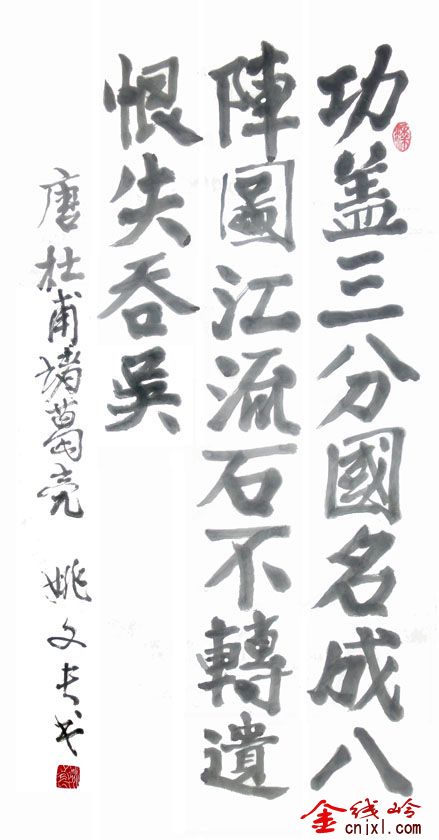 功盖三分國名成八
陣圖江流石不轉遺
恨失吞吳
唐杜甫诸葛亮 姚文 书
金线岭
cnjxl.com